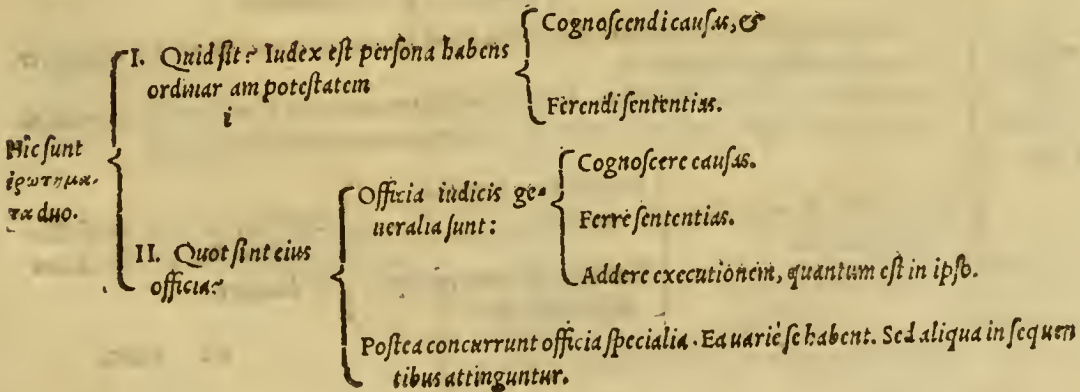 Hic sunt
ἐρωτήμα-
τα duo.
I. Quid sit? Iudex est persona habens
ordinar am potestatem
i
Cognoscendi causas, &
Ferendi sententias.
II. Quot sint eius
officia?
Officia iudicis ge-
neralia sunt:
Cognoscere causas.
Ferrè sententias.
Addere executionem, quantum est in ipso.
Postea concurrunt officia specialia. Ea uariè se habent. Sed aliqua in sequen
tibus attinguntur.